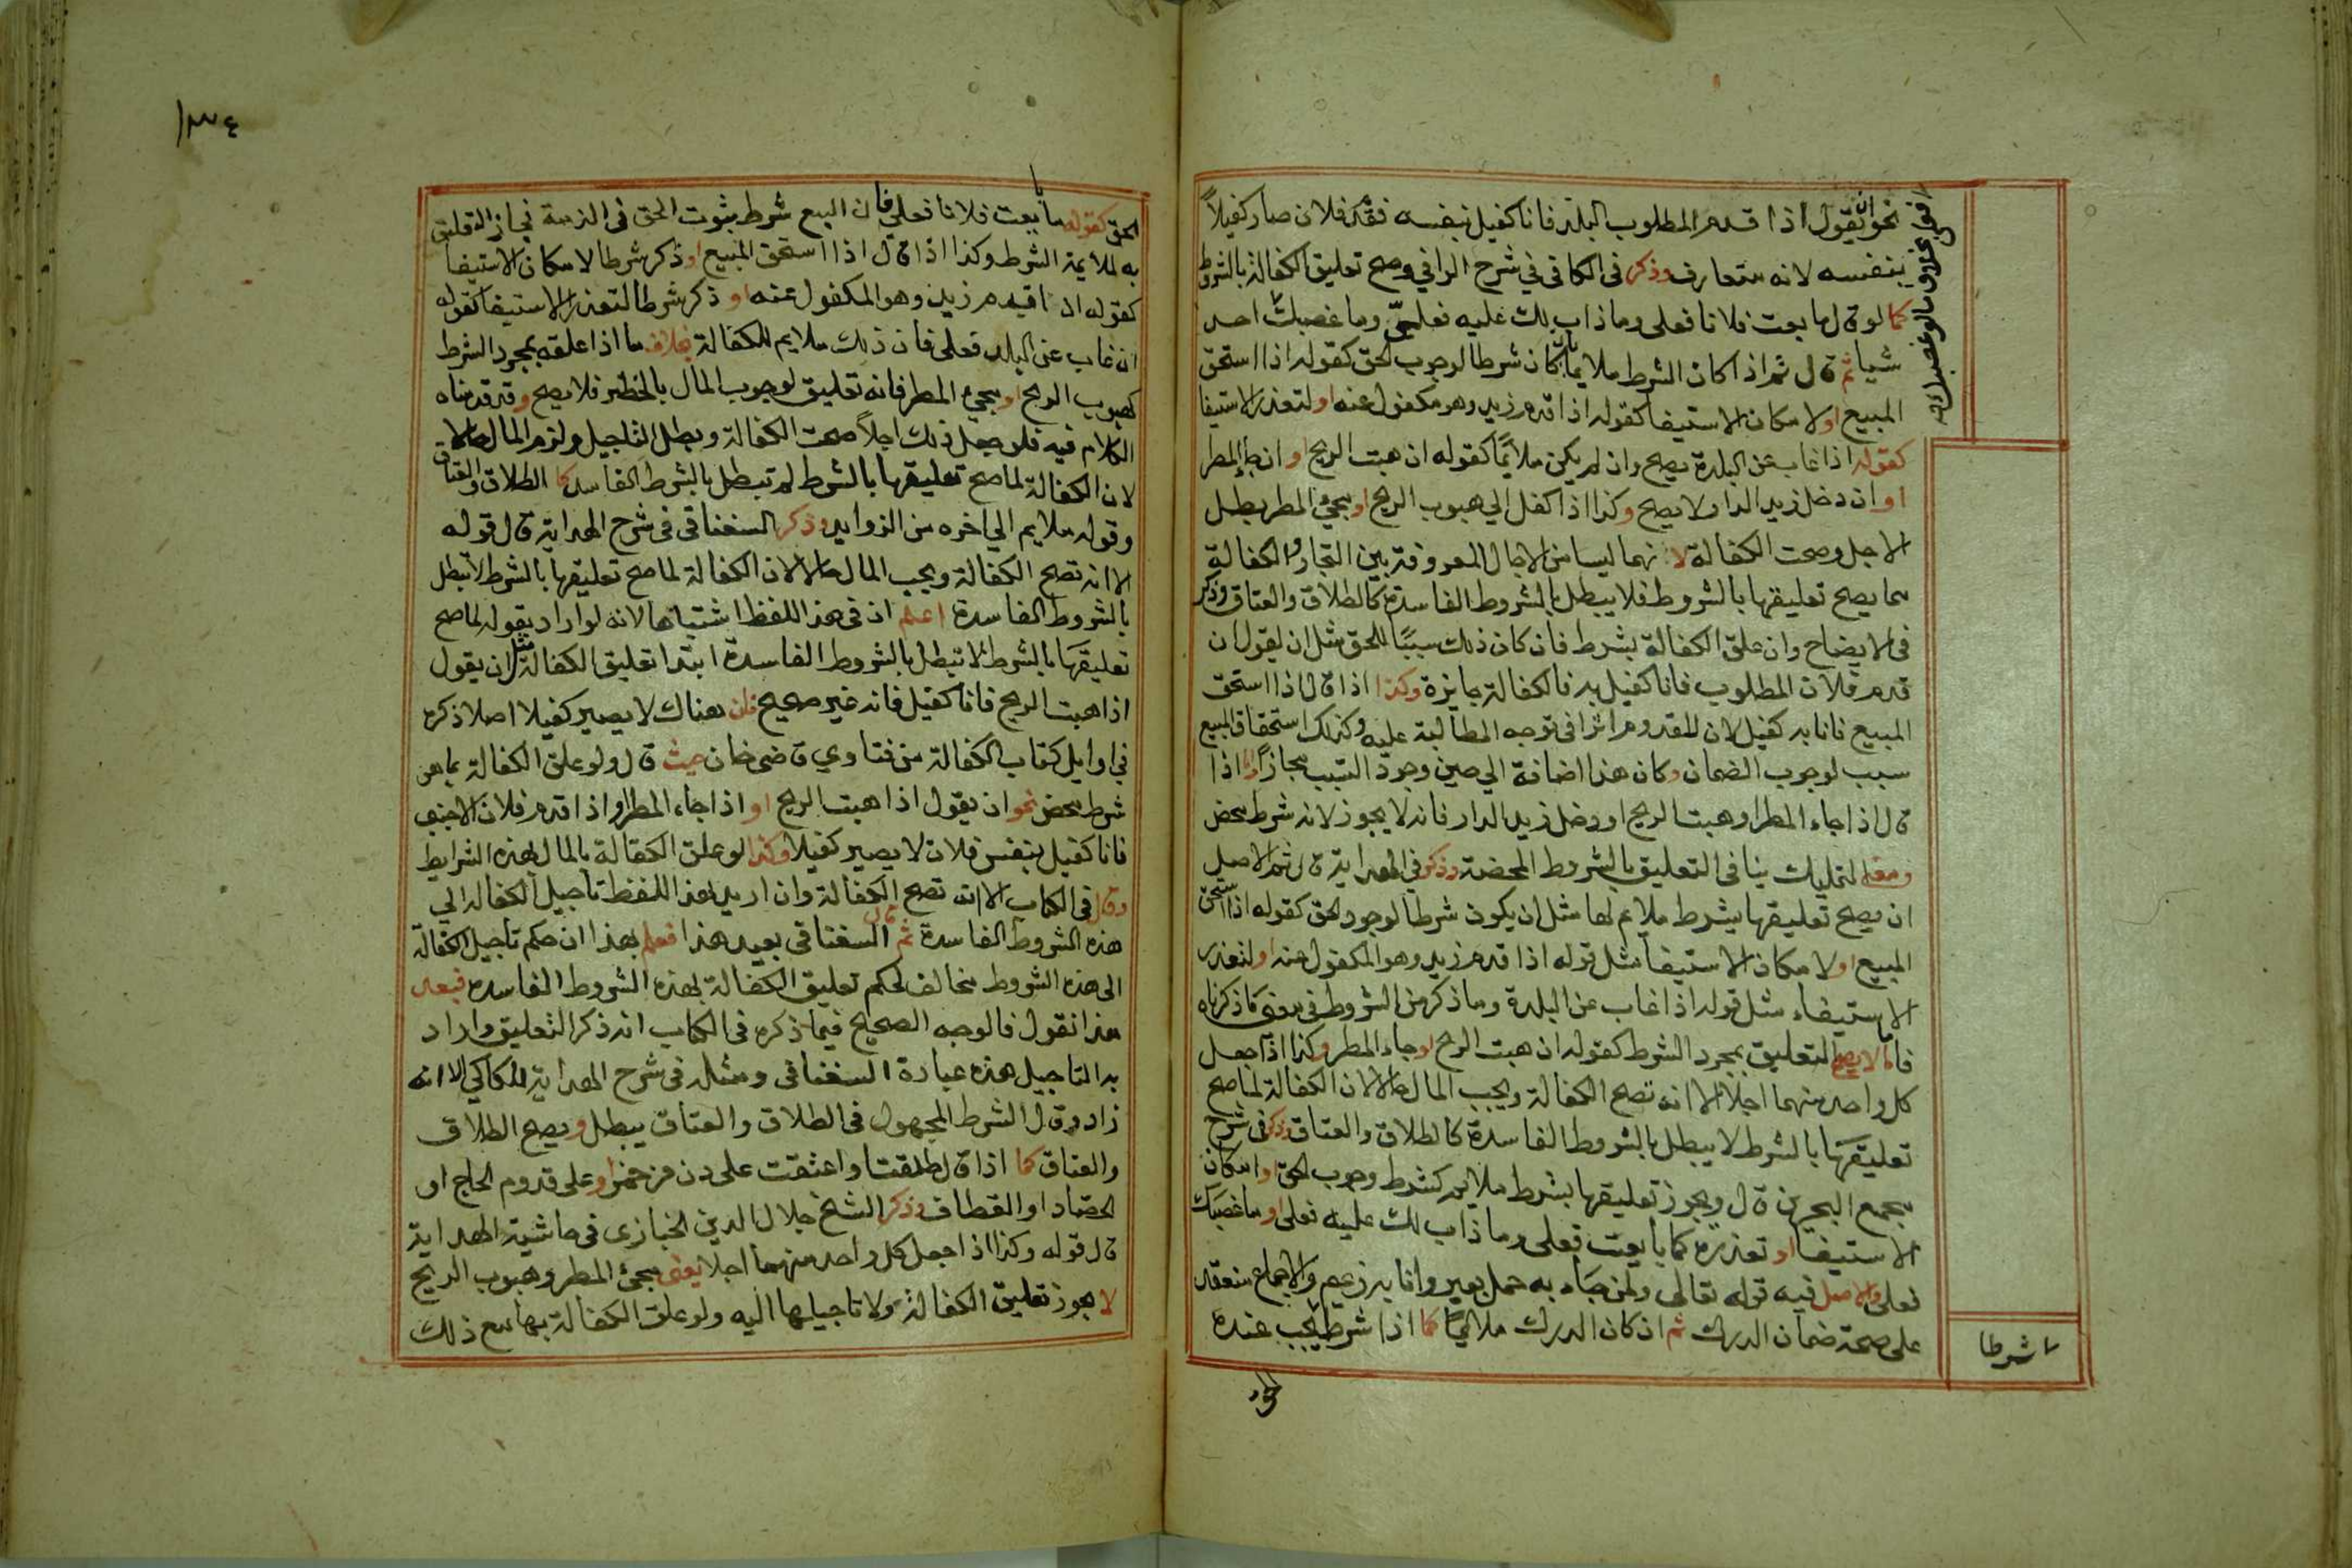 نحو ان يقول اذا قدم المطلوب البلد فانا كفيل بنفسه فقدم فلان صار كفيلاً
بنفسه لانه متعارف وذكر فى الكافى في شرح الوافي وصح تعليق الكفالة بالشروط
كما لو قال ما بعت فلانا فعلى وما ذاب لك عليه فعلىّ وما غصبك احد
شيا ثم قال ثم اذا كان الشرط ملايما بان كان شرطا لوجوب الحق كقوله اذا استحق
المبيع او لامكان الاستيفا كقوله اذا قدم زيد وهو مكفول عنه او لتعذر الاستيفا
كقوله اذا غاب عن البلدة يصح وان لم يكن ملائما كقوله ان هبت الريح او ان جا المطر
او ان دخل زيد الدار لا يصح وكذا اذا كفل الي هبوب الريح او مجئ المطر بطل
الاجل وصحت الكفالة لانهما ليسا من الاجال المعروفة بين التجار والكفالة
مما يصح تعليقها بالشروط فلا يبطل بالشروط الفاسدة كالطلاق والعتاق وذكر
فى الايضاح وان علق الكفالة بشرط فان كان ذلك سببًا للحق مثل ان يقول ان
قدم فلان المطلوب فانا كفيل به فالكفالة جايزة وكذا اذا قال اذا استحق
المبيع فانا به كفيل لان للقدوم اثرا فى توجه المطالبة عليه وكذلك استحقاق المبيع
سبب لوجوب الضمان وكان هذا اضافة الي حين وجود السبب فجاز اما اذا
قال اذا جاء المطر او هبت الريح او دخل زيد الدار فانه لا يجوز لانه شرط محض
ومعنى التمليك ينافى التعليق بالشروط المحضة وذكر في الهداية قال ثم الاصل
ان يصح تعليقها بشرط ملايم لها مثل ان يكون شرطا لوجود الحق كقوله اذا استحق
المبيع او لامكان الاستيفا مثل قوله اذا قدم زيد وهو المكفول عنه او لتعذر
الاستيفاء مثل قوله اذا غاب عن البلدة وما ذكر من الشروط فى معنى ما ذكرناه
فاما لا يصح التعليق بمجرد الشرط كقوله ان هبت الريح او جاء المطر وكذا اذا جعل
كل واحد منهما اجلا الا انه تصح الكفالة ويجب المال حالا لان الكفالة لما صح
تعليقها بالشرط لا يبطل بالشروط الفاسدة كالطلاق والعتاق وذكر فى شرح
مجمع البحرين قال ويجوز تعليقها بشرط ملايم كشرط وجوب الحق او امكان
الاستيفا او تعذره كما بايعت فعلى وما ذاب لك عليه فعلى او ما غصبك
فعلى والاصل فيه قوله تعالى ولمن جاء به حمل بعير وانا به زعيم والاجماع منعقد
على صحة ضمان الدرك ثم ان كان الدرك ملايما كما اذا شرط يجب عنده
شرطا
الحق كقوله ما بايعت فلانا فعلي فان البيع شرط ثبوت الحق فى الذمة فجاز التعليق
به لملايمة الشرط وكذا اذا قال اذا استحق المبيع او ذكر شرطا لامكان الاستيفا
كقوله اذا قدم زيد وهو المكفول عنه او ذكر شرطا لتعذر الاستيفا كقوله
ان غاب عن البلد فعلى فان ذلك ملايم للكفالة بخلاف ما اذا علقه بمجرد الشرط
كهبوب الريح او مجئ المطر فانه تعليق لوجوب المال بالخطر فلا يصح وقد قدمناه
الكلام فيه فلو جعل ذلك اجلاً صحت الكفالة وبطل التاجيل ولزم المال حالا
لان الكفالة لما صح تعليقها بالشرط لم تبطل بالشرط الفاسد كما الطلاق والعتاق
وقوله ملايم الي اخره من الزوايد وذكر السغناقى فى شرح الهداية قال قوله
الا انه تصح الكفالة ويجب المال حالا لان الكفالة لما صح تعليقها بالشرط لا تبطل
بالشروط الفاسدة اعلم ان فى هذا اللفظ اشتباها لانه لو اراد بقوله لما صح
تعليقها بالشرط لا تبطل بالشروط الفاسدة ابتدا تعليق الكفالة مثل ان يقول
اذا هبت الريح فانا كفيل فانه غير صحيح فان هناك لا يصير كفيلا اصلا ذكره
في اوايل كتاب الكفالة من فتاوي قاضى خان حيث قال ولو علق الكفالة بما هو
شرط محض نحو ان يقول اذا هبت الريح او اذا جاء المطر او اذا قدم فلان الاجنبى
فانا كفيل بنفس فلان لا يصير كفيلا وكذا لو علق الكفالة بالمال بهذه الشرايط
وقال فى الكتاب الا انه تصح الكفالة وان اريد بهذا اللفظ تاجيل الكفالة الي
هذه الشروط الفاسدة ثم قال السغناقى بعيد هذا فعلم بهذا ان حكم تاجيل الكفالة
الى هذه الشروط مخالف لحكم تعليق الكفالة بهذه الشروط الفاسده فبعد
هذا نقول فالوجه الصحيح فيما ذكره فى الكتاب انه ذكر التعليق واراد
به التاجيل هذه عبارة السغناقى ومثله فى شرح الهداية للكاكي الا انه
زاد وقال الشرط المجهول فى الطلاق والعتاق يبطل ويصح الطلاق
والعتاق كما اذا قال طلقت او اعتقت على دن من خمر او على قدوم الحاج او
الحصاد او القطاف وذكر الشيخ جلال الدين الخبازى فى حاشية الهداية
قال قوله وكذا اذا جعل كل واحد منهما اجلا يعنى مجئ المطر وهبوب الريح
لا يجوز تعليق الكفالة ولا تاجيلها اليه ولو علق الكفالة بها مع ذلك